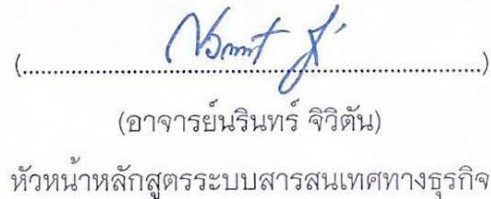 (....................................................................)
(อาจารย์นรินทร์ จิวิตัน)
หัวหน้าหลักสูตรระบบสารสนเทศทางธุรกิจ